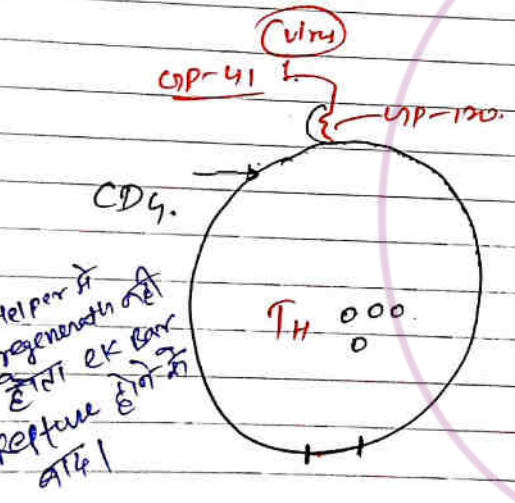 virus
GP-41
GP-120.
CD4.
TH
Helper में
regenerath नही
होता ek Bar
Repture होने के
बाद।